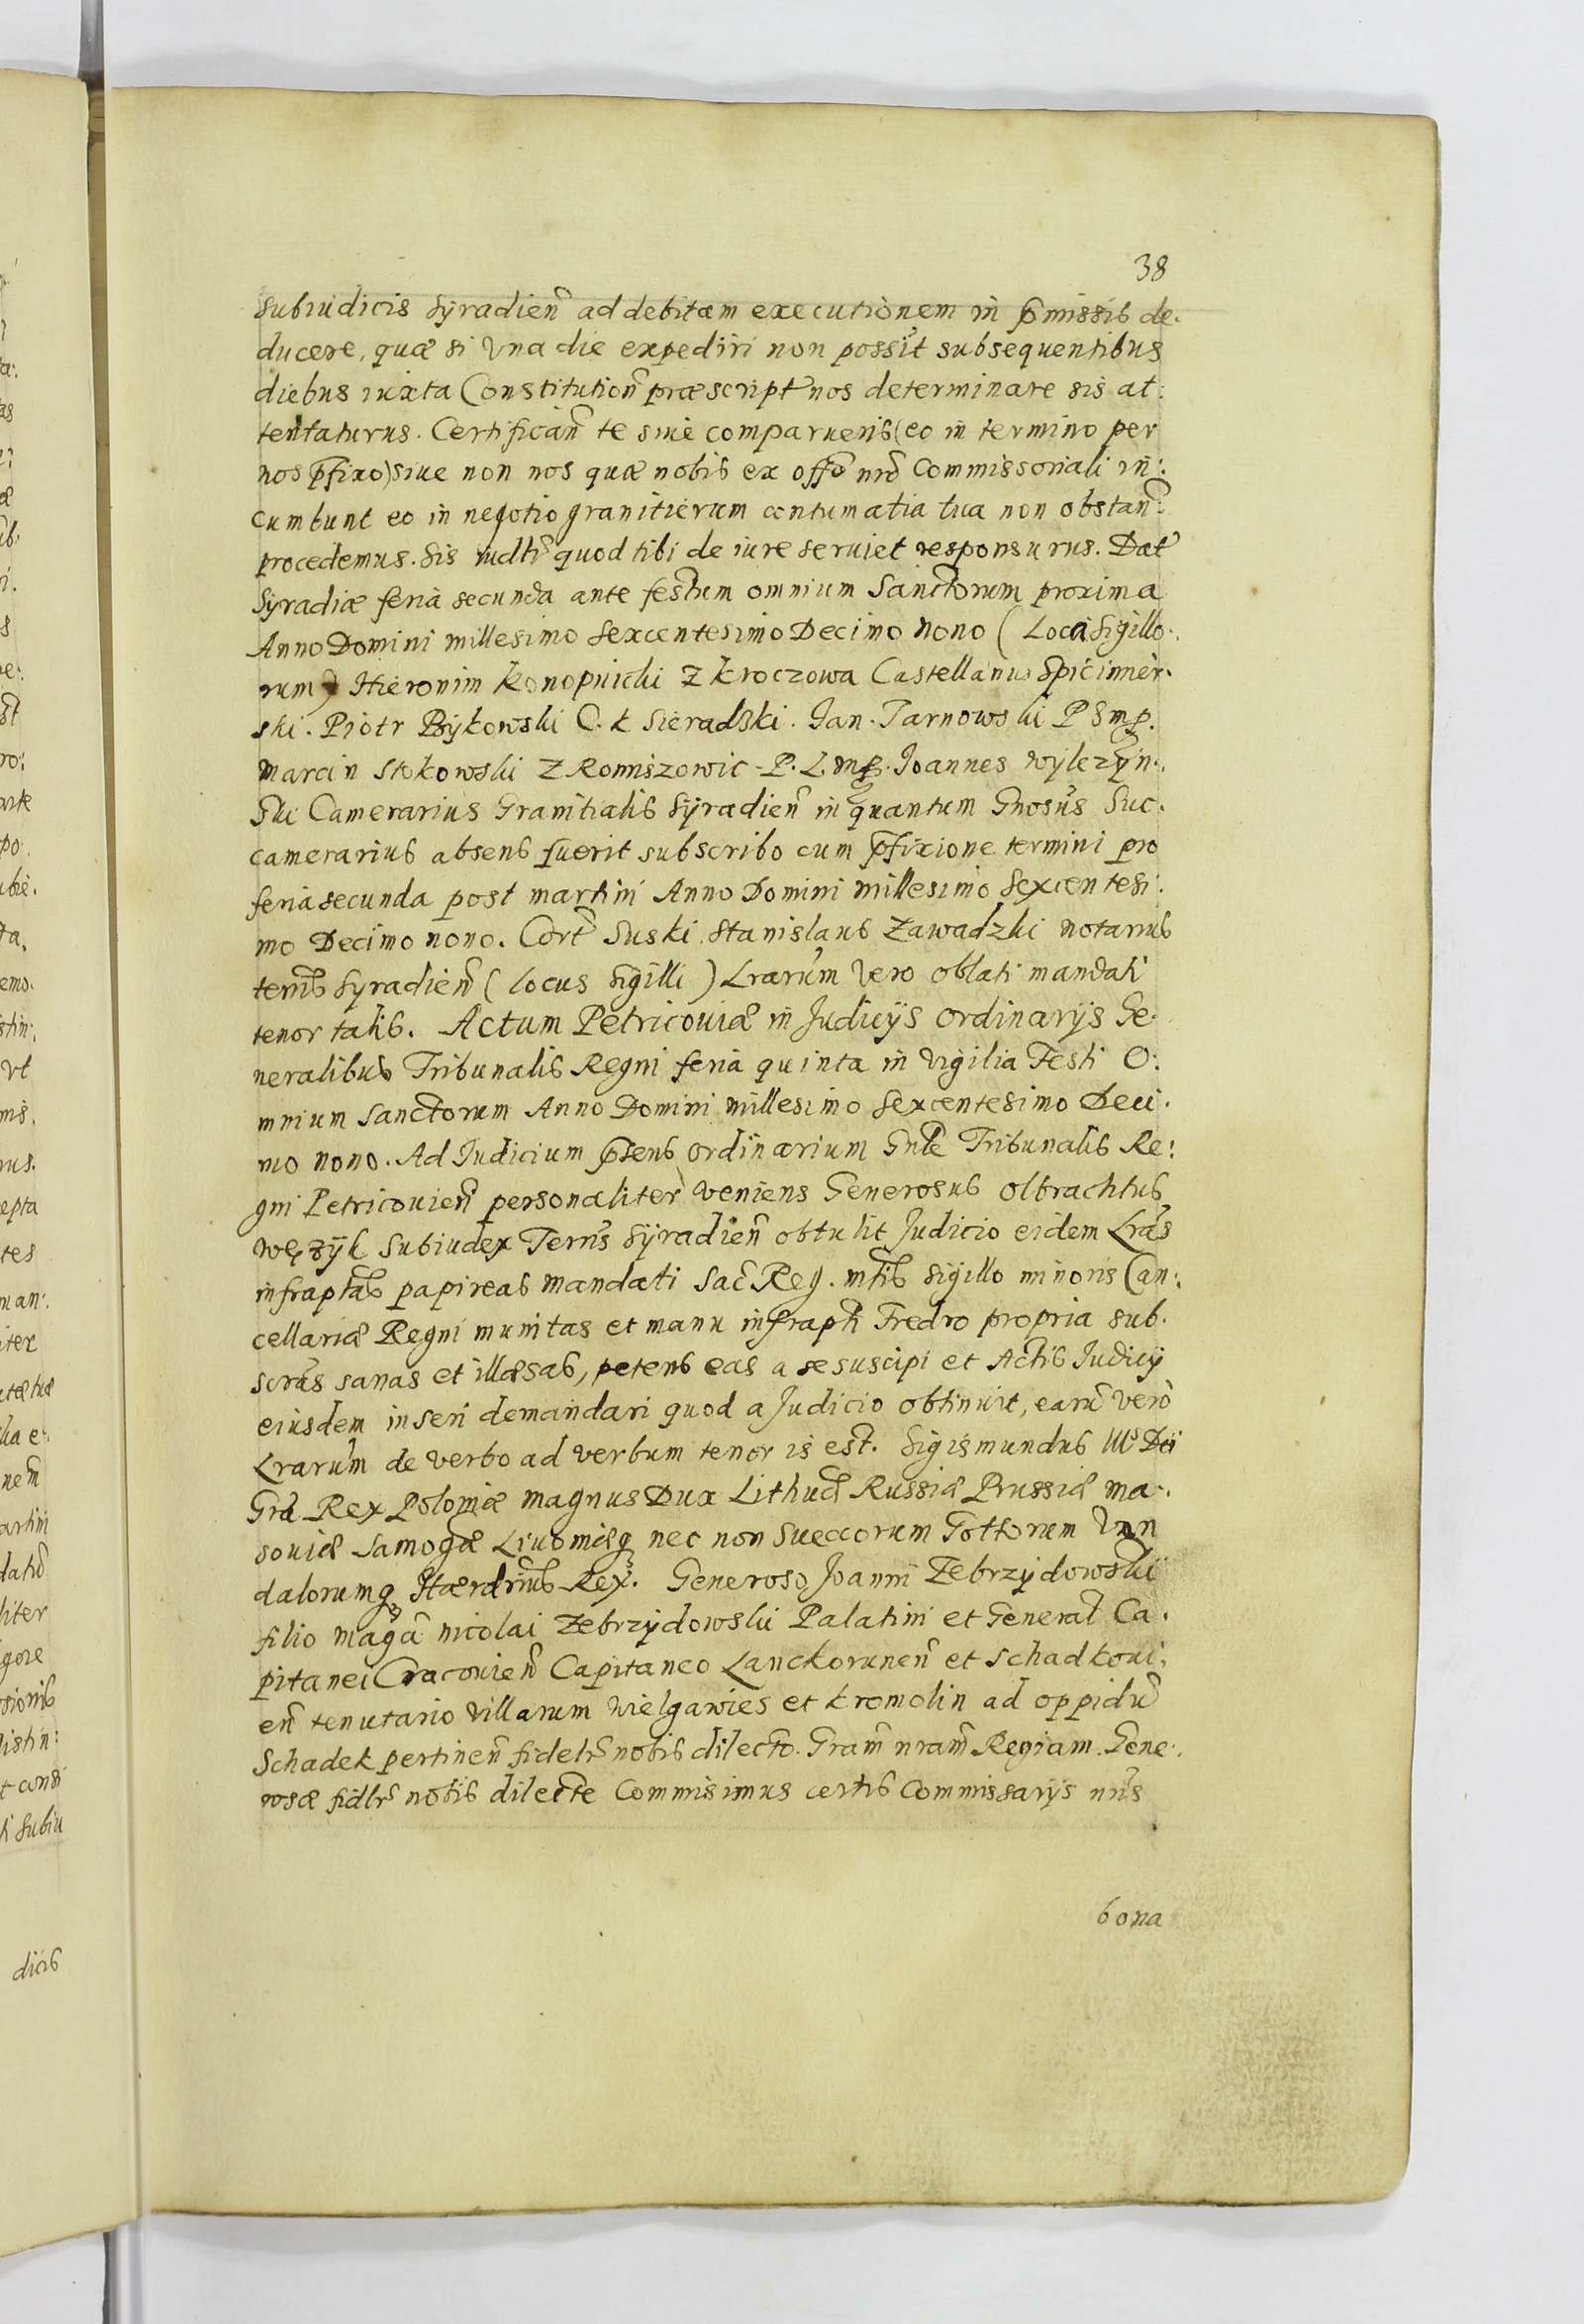 38
Subiudicis Syradien̄ ad debitam executionem in p̄missis de.
ducere, quæ si vna die expediri non possit subsequentibus
diebus iuxta Constitution̄ præscript nos determinare sis at:
tentaturus. Certifican̄ te siue comparueris (eo in termino per
nos p̄fixo) siue non nos quæ nobis ex offo nr̄o Commissoriali in:
cumbunt eo in negotio granitierum contumatia tua non obstan̄
procedemus. Sis iudlr̄ quod tibi de iure seruiet responsurus. Dat
Syradiæ feria secunda ante festum omnium Sanctorum proxima
Anno Domini millesimo Sexcentesimo Decimo Nono (Loca Sigillo.
rum) Hieronim Konopnicki Z Kroczowa Castellanus Spicimier.
ski. Piotr Bykowski C. k Sieradzki. Jan Tarnowski P S mp.
Marcin Stokowski Z Romiszowic P. L. mp. Joannes Wylezyn.
ski Camerarius Granitialis Syradien̄ in quantum Gnosus Suc.
camerarius absens fuerit subscribo cum p̄fixione termini pro
feria secunda post martini Anno Domini Millesimo Sexcentesi.
mo Decimo nono. Cort Suski Stanislaus Zawadzki Notarius
terris Syradien̄ (locus Sigilli) Lrarum vero oblati mandati
tenor talis. Actum Petricouiæ in Judicijs Ordinarijs Ge.
neralibus Tribunalis Regni feria quinta in Vigilia Festi O:
mnium Sanctorum Anno Domini Millesimo Sexcentesimo Deci.
mo Nono. Ad Judicium p̄sens Ordinarium Gnle Tribunalis Re:
gni Petricouien̄ personaliter veniens Generosus Olbrachtus
Wężyk Subiudex Terris Syradien̄ obtulit Judicio eidem Lras
infraptas papireas Mandati Sac̄ Reg. mtis Sigillo minoris Can:
cellariæ Regni munitas et manu infrapti Fredro propria sub.
scras sanas et illæsas, petens eas a se suscipi et Actis Judicij
eiusdem inseri demandari quod a Judicio obtinuit, earū verō
Lrarum de verbo ad verbum tenor is est. Sigismundus IIIs Dei
Gra Rex Poloniæ Magnus Dux Lithuæ Russiæ Prussiæ Ma.
souiæ Samogæ Liuoniæq nec non Sueccorum Gottorum Van
dalorumq Hærdrius Rex. Generoso Joanni Zebrzydowskij
filio Magci Nicolai Zebrzydowski Palatini et General Ca.
pitanei Cracouien̄ Capitaneo Lanckorunen̄ et Schadkoui:
en̄ tenutario villarum Wielgawies et Kromolin ad oppidū
Schadek pertinen̄ fidelr nobis dilecto. Gram̄ nram̄ Regiam. Gene.
rosæ fidlr nobis dilecte Commisimus certis Commissarijs nris
bona